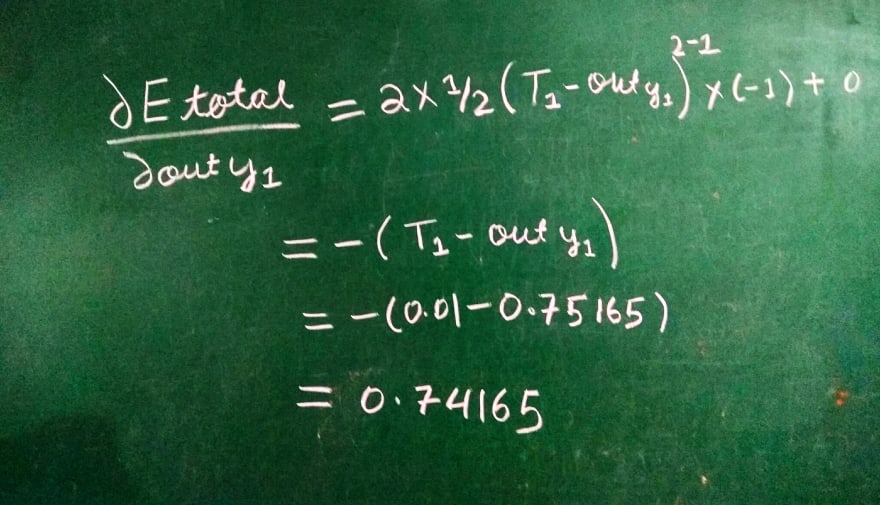 ∂E total / ∂out y₁ = 2×1/2(T₁-out y₁)²⁻¹×(-1)+0
= -(T₁-out y₁)
= -(0.01-0.75165)
= 0.74165